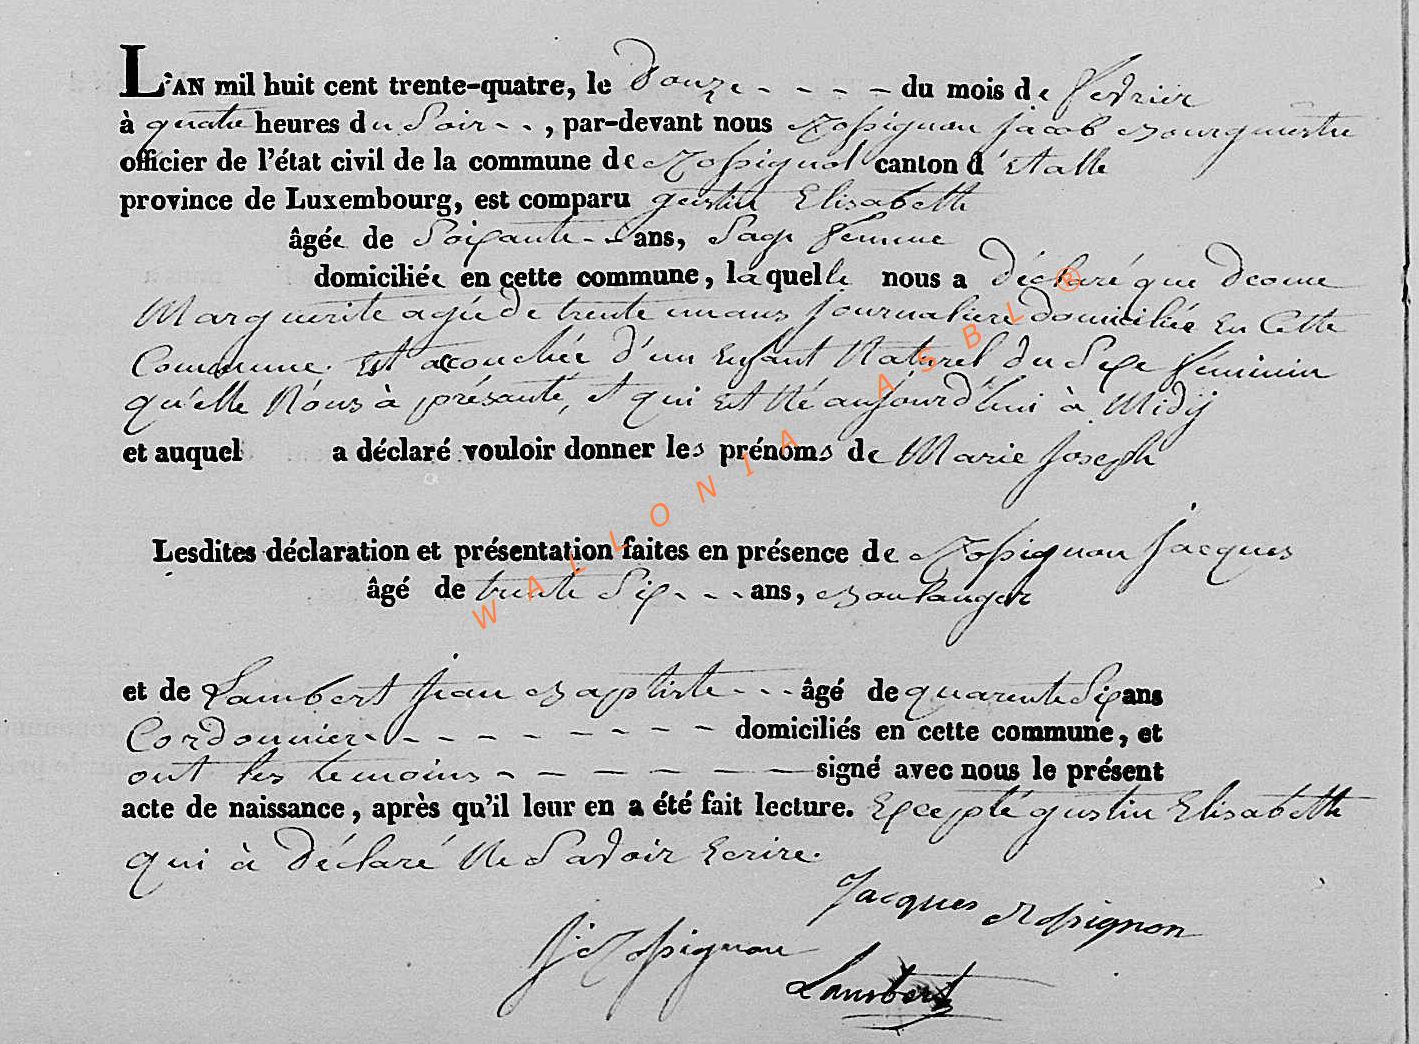 L'AN mil huit cent trente-quatre, le Douze - - - - du mois de fevrier
à quatre heures du Soir - - , par-devant nous Rossignon Jacob Bourguestre
officier de l'état civil de la commune de Rossignol canton d'Etalle
province de Luxembourg, est comparu gustin Elisabeth
âgée de Soixante - - ans, Sage femme
domiciliée en cette commune, laquelle nous a Déclaré que
Marguerite agée de trente un ans Journaliere domiciliée En Cette
Commune. Est accouchée d'un Enfant Naturel du Sexe féminin
qu'elle Nous à présanté, et qui Est Né aujourd'hui à Midij
et auquel a déclaré vouloir donner les prénoms de Marie Joseph
Lesdites déclaration et présentation faites en présence de Rossignon Jacques
âgé de trente Six - - - ans, Boulanger
et de Lambert Jean Baptiste - - - âgé de quarente Six ans
Cordonnier - - - - - - - - - domiciliés en cette commune, et
ont les temoins - - - - - - - signé avec nous le présent
acte de naissance, après qu'il leur en a été fait lecture. Excepté gustin Elisabeth
qui à Déclaré Ne Savoir Ecrire.
Jacques Rossignon
J Rossignon
Lambert
WALLONIA ASBL ®